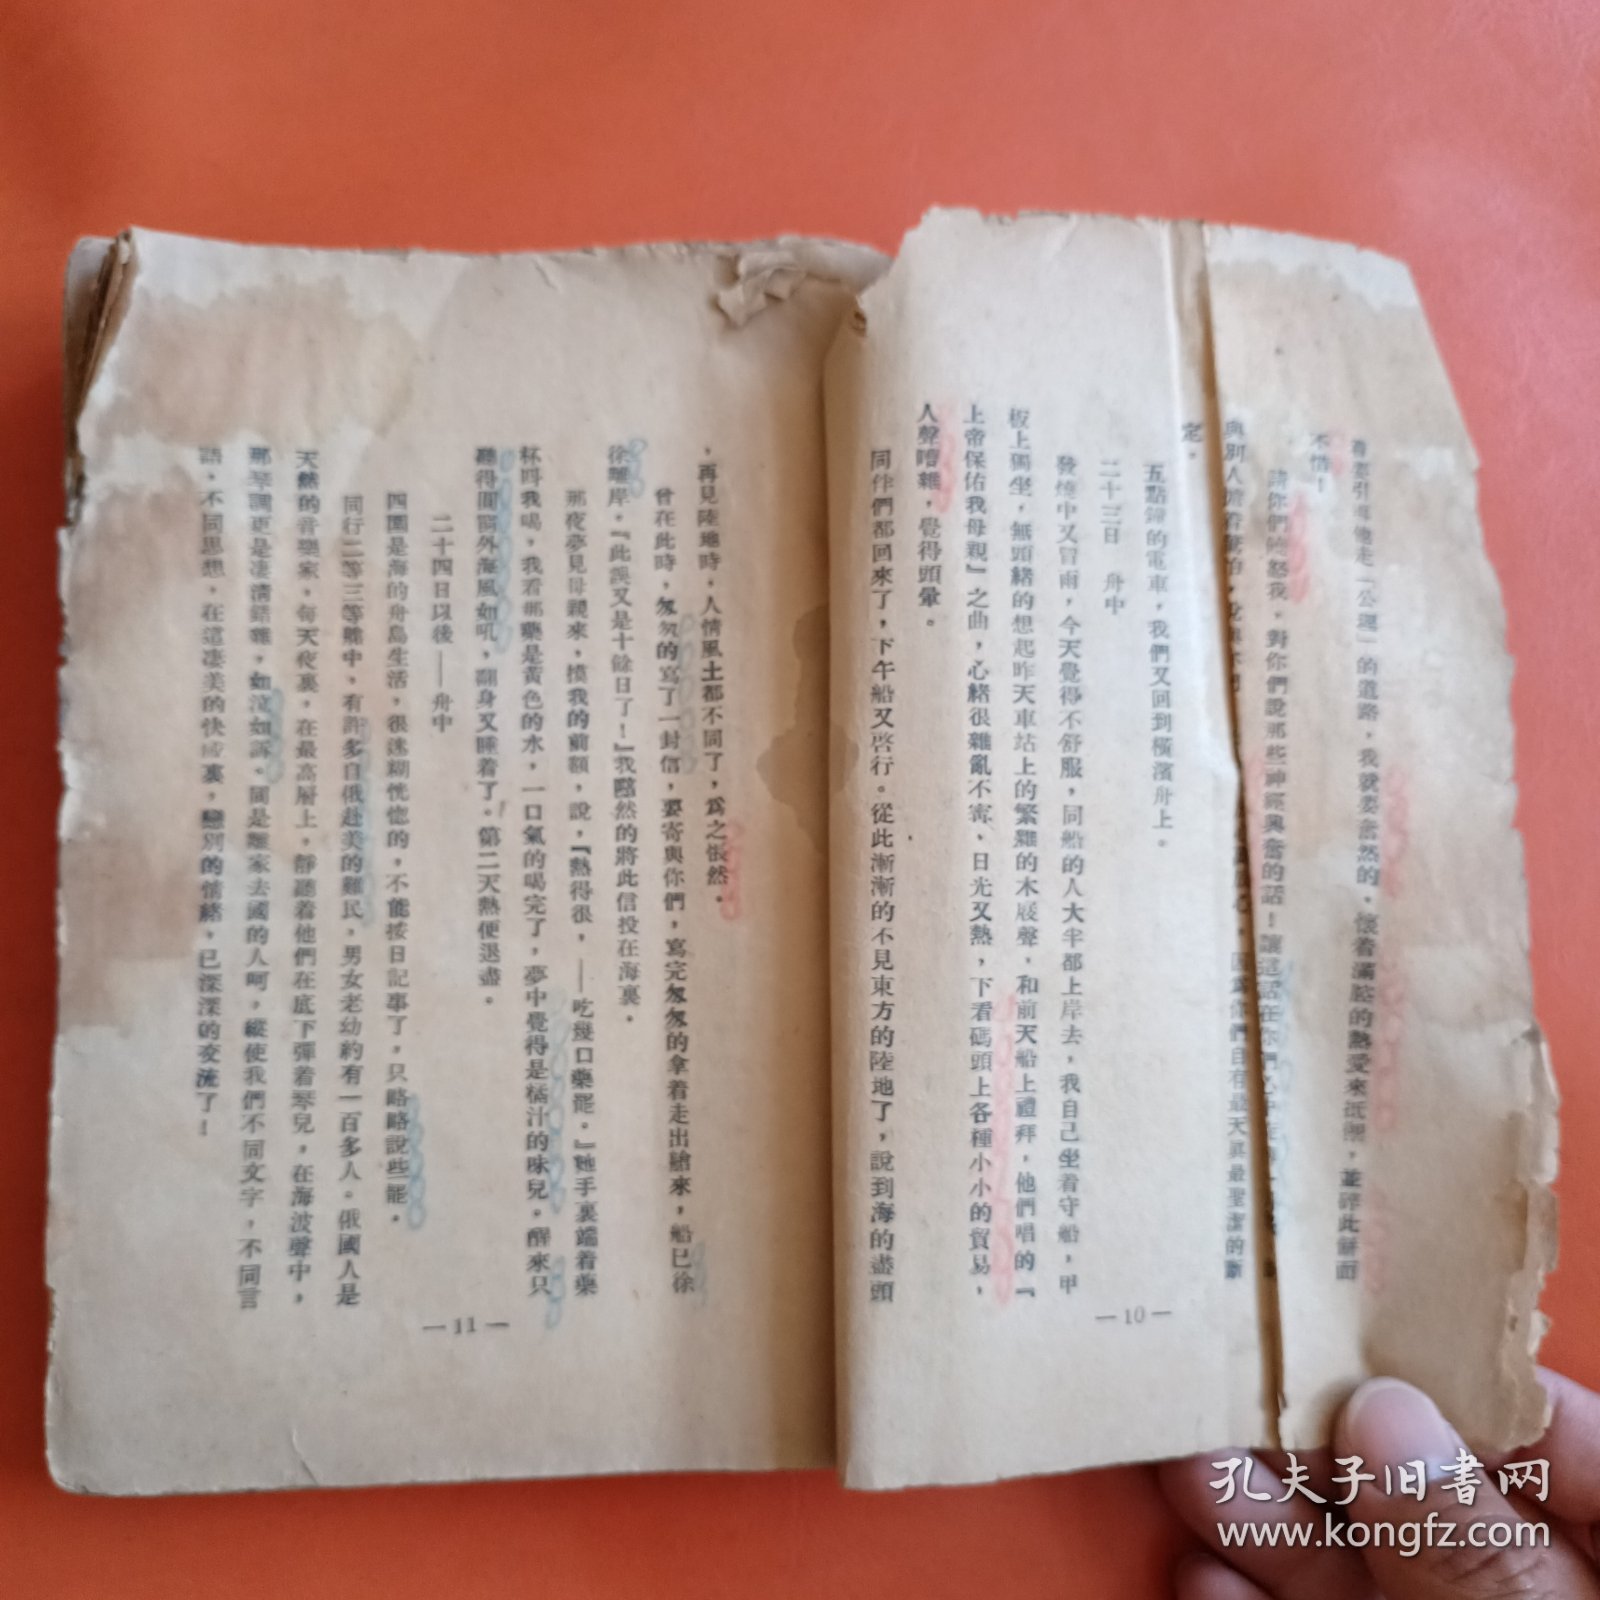 引導他走「公理」的道路，我就要奮然的，懷着滿腔的熱愛來抵禦，並碎此餅而
不惜！
請你們饒恕我，對你們說那些神經興奮的話！讓這話在你們心中
與別人
們自有最天眞最聖潔的斷
定。
五點鐘的電車，我們又回到橫濱舟上。
二十三日　舟中
發燒中又冒雨，今天覺得不舒服，同船的人大半都上岸去，我自己坐着守船，甲
板上獨坐，無頭緒的想起昨天車站上的繁雜的木屐聲，和前天船上禮拜，他們唱的『
上帝保佑我母親』之曲，心緒很雜亂不寧，日光又熱，下看碼頭上各種小小的貿易，
人聲嘈雜，覺得頭暈。
同伴們都回來了，下午船又啓行。從此漸漸的不見東方的陸地了，說到海的盡頭
—10—
，再見陸地時，人情風土都不同了，爲之悵然。
曾在此時，匆匆的寫了一封信，要寄與你們，寫完匆匆的拿着走出艙來，船已徐
徐離岸。『此誤又是十餘日了！』我黯然的將此信投在海裏。
那夜夢見母親來，摸我的前額，說，『熱得很，——吃幾口藥罷。』她手裏端着藥
杯叫我喝，我看那藥是黃色的水，一口氣的喝完了，夢中覺得是橘汁的味兒。醒來只
聽得圓窗外海風如吼，翻身又睡着了。第二天熱便退盡。
二十四日以後——舟中
四圍是海的舟島生活，很迷糊恍惚的，不能按日記事了，只略略說些罷。
同行二等三等艙中，有許多自俄赴美的難民，男女老幼約有一百多人。俄國人是
天然的音樂家，每天夜裏，在最高層上，靜聽着他們在底下彈着琴兒，在海波聲中，
那琴調更是凄清錯雜，如泣如訴。同是離家去國的人呵，縱使我們不同文字，不同言
語，不同思想，在這凄美的快感裏，戀別的情緒，已深深的交流了！
—11—
孔夫子旧書网
www.kongfz.com